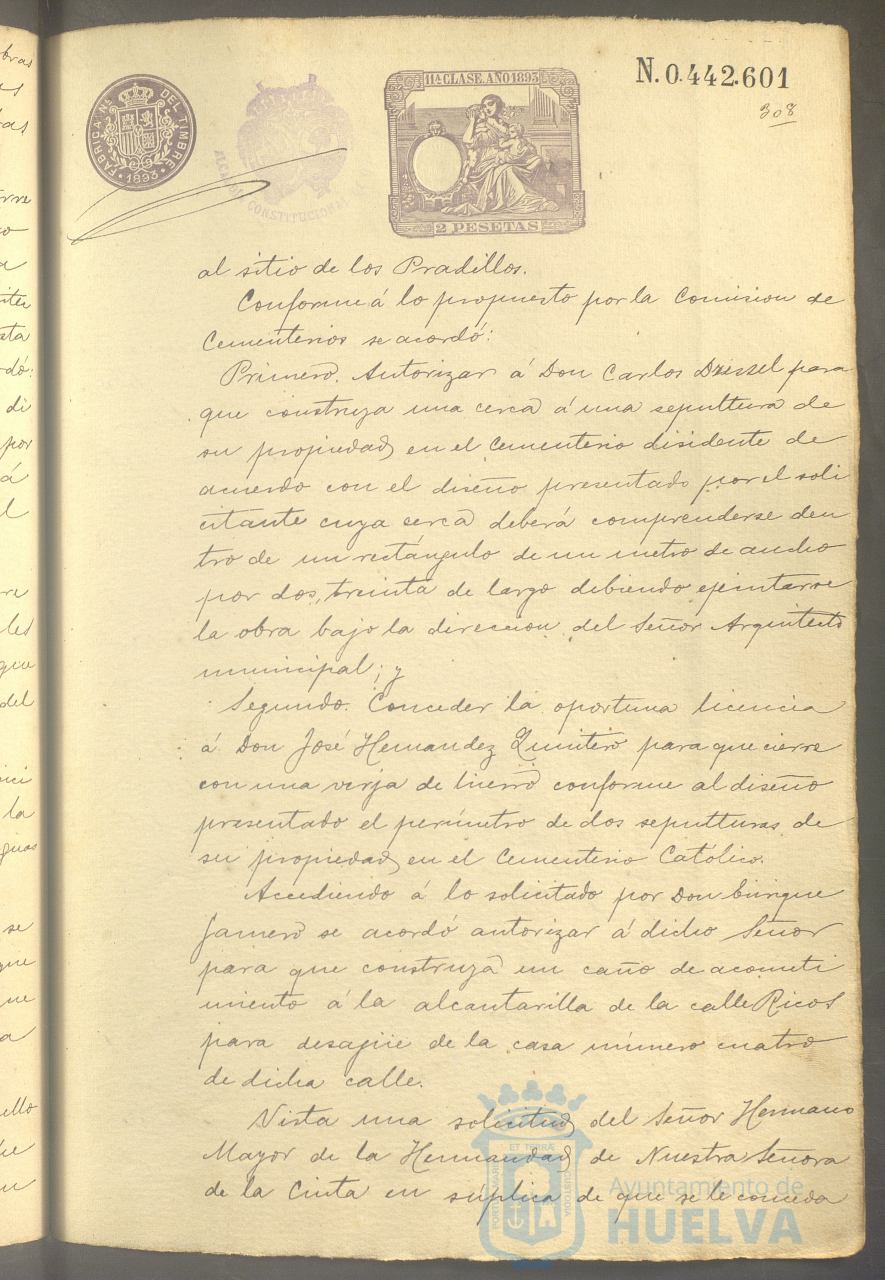 FABRICA Nal. DEL TIMBRE
1893
ALCALDIA CONSTITUCIONAL
11ª CLASE. AÑO 1893
2 PESETAS
N.0.442.601
308
al sitio de los Pradillos.
Conforme á lo propuesto por la Comision de
Cementerios se acordó:
Primero. Autorizar á Don Carlos para
que construya una cerca á una sepultura de
su propiedad en el Cementerio disidente de
acuerdo con el diseño presentado por el soli
citante cuya cerca deberá comprenderse den
tro de un rectángulo de un metro de ancho
por dos, treinta de largo debiendo ejecutarse
la obra bajo la direccion del Señor Arquitecto
municipal; y
Segundo. Conceder la oportuna licencia
á Don José Hernandez Quintero para que cierre
con una verja de hierro conforme al diseño
presentado el perímetro de dos sepulturas de
su propiedad en el Cementerio Católico.
Accediendo á lo solicitado por Don Enrique
se acordó autorizar á dicho Señor
para que construya un caño de acometi
miento á la alcantarilla de la calle Ricos
para desagüe de la casa número cuatro
de dicha calle.
Vista una solicitud del Señor Hermano
Mayor de la Hermandad de Nuestra Señora
de la Cinta en súplica de que se le conceda
PORTUS MARIS ET TERRÆ CUSTODIA
Ayuntamiento de
HUELVA